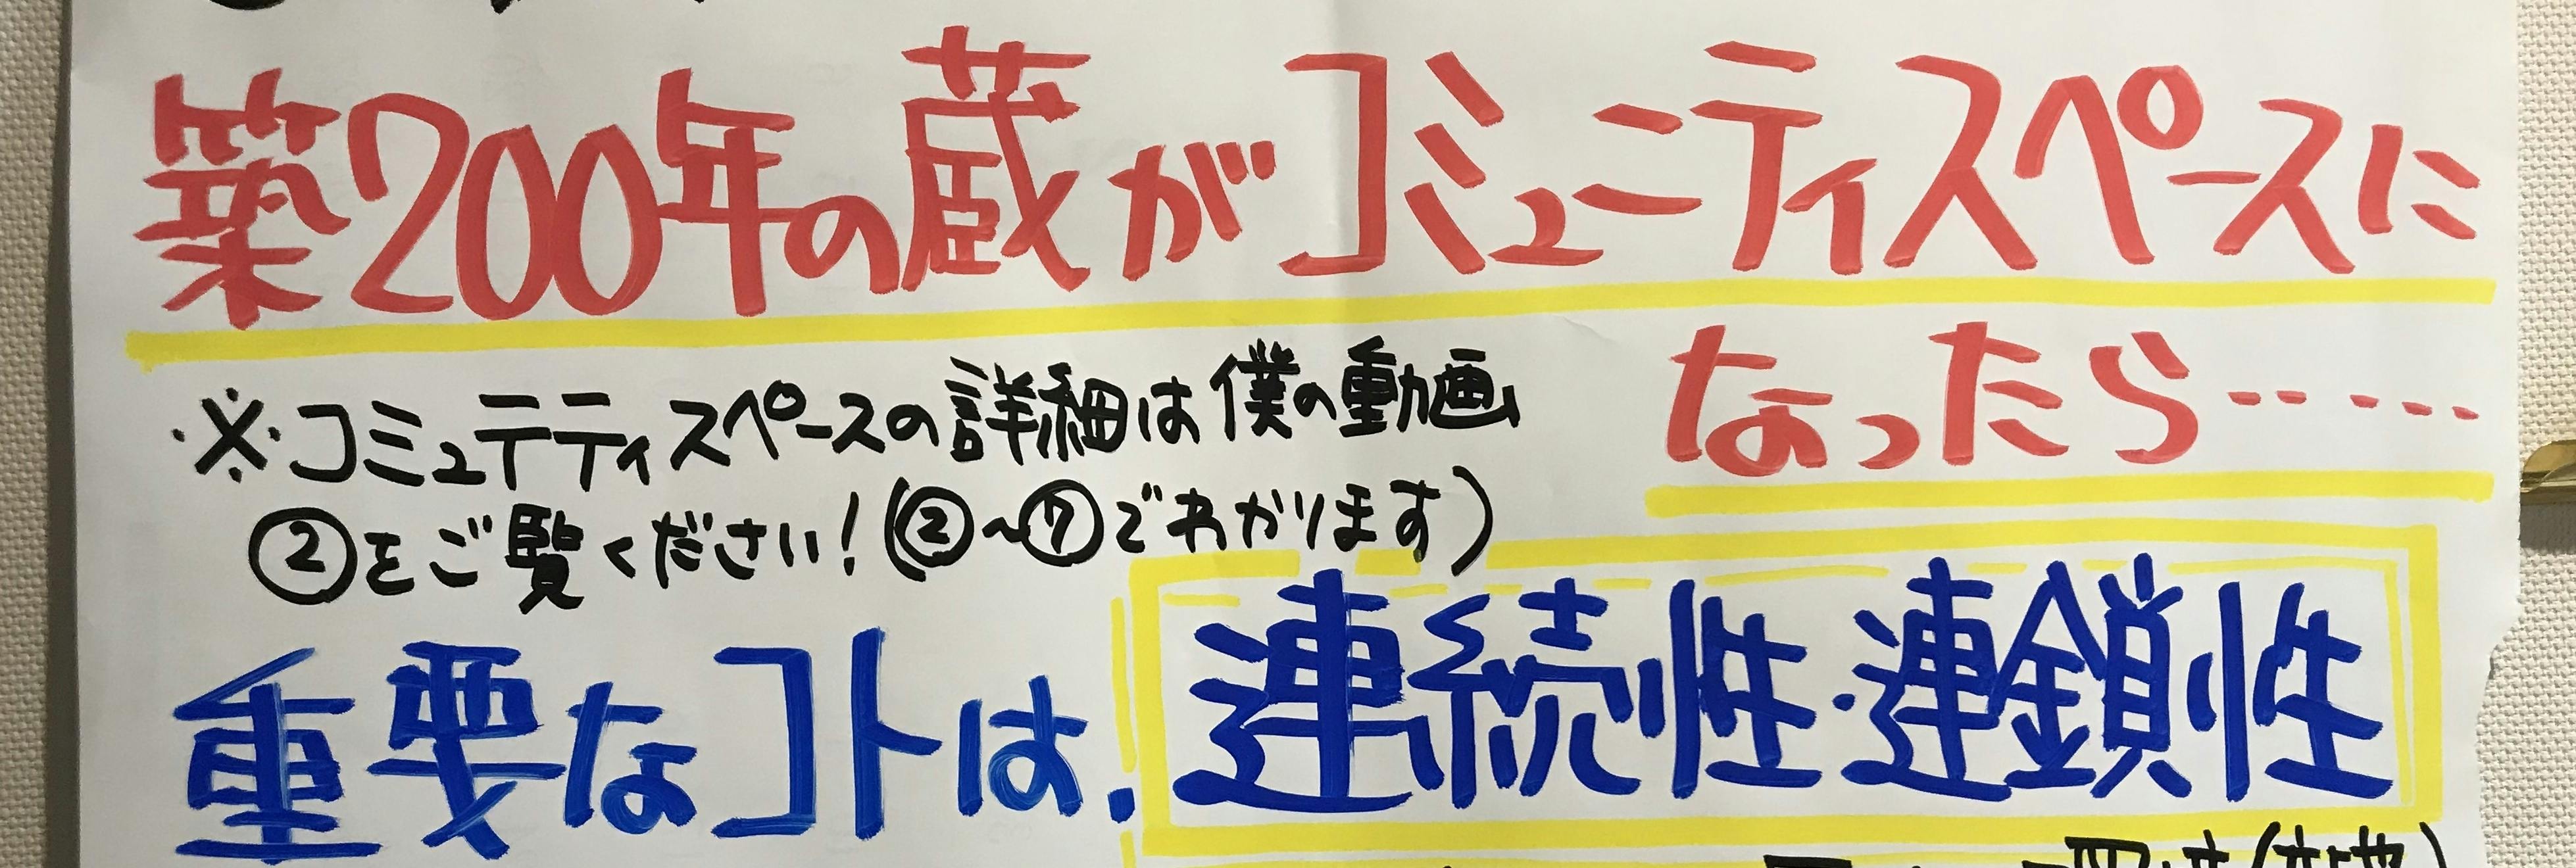 築200年の蔵がコミュニティスペースに
なったら‥‥‥
※コミュテティスペースの詳細は僕の動画
②をご覧ください!(②~⑦でわかります)
重要なコトは.連続性・連鎖性